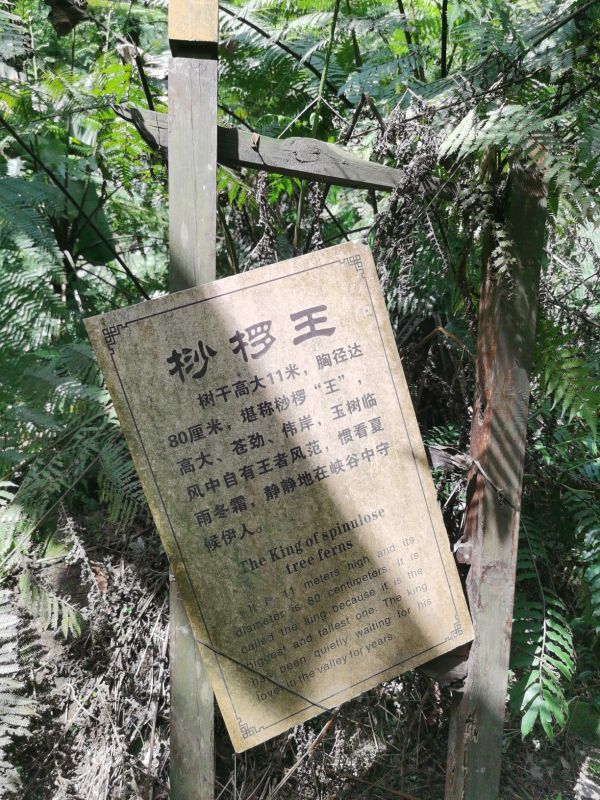 桫椤王
树干高大11米，胸径达
80厘米，堪称桫椤“王”，
高大、苍劲、伟岸，玉树临
风中自有王者风范，惯看夏
雨冬霜，静静地在峡谷中守
候伊人。
The King of spinulose
tree ferns
It is 11 meters high and its
diameter is 80 centimeters. It is
called the king because it is the
biggest and tallest one. The king
has been quietly waiting for his
love in the valley for years.